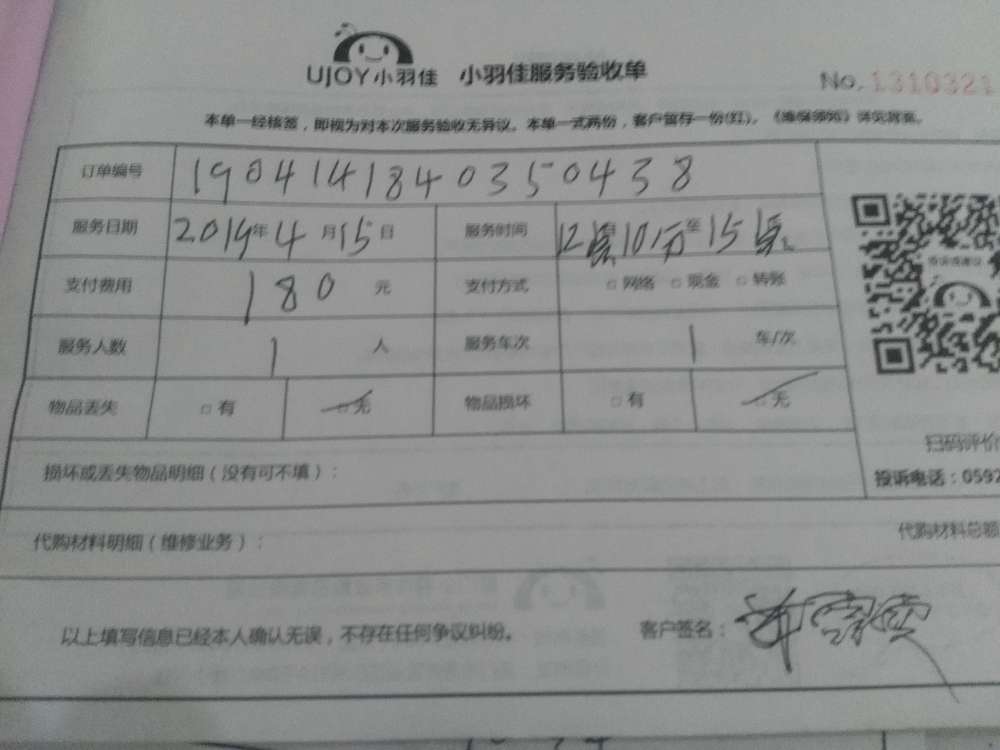 UJOY小羽佳 小羽佳服务验收单
No. 1310321
本单一经核签，即视为对本次服务验收无异议。本单一式两份，客户留存一份(红)。
订单编号 190414184035 0438
服务日期 2019年4月15日 服务时间 12 10分至15
支付费用 180 元 支付方式 □网络 □现金 □转账
服务人数 1 人 服务车次 1 车/次
物品丢失 □有 □无 物品损坏 □有 □无
扫码评价
损坏或丢失物品明细（没有可不填）：
投诉电话：0592
代购材料明细（维修业务）：
代购材料总额
以上填写信息已经本人确认无误，不存在任何争议纠纷。 客户签名：